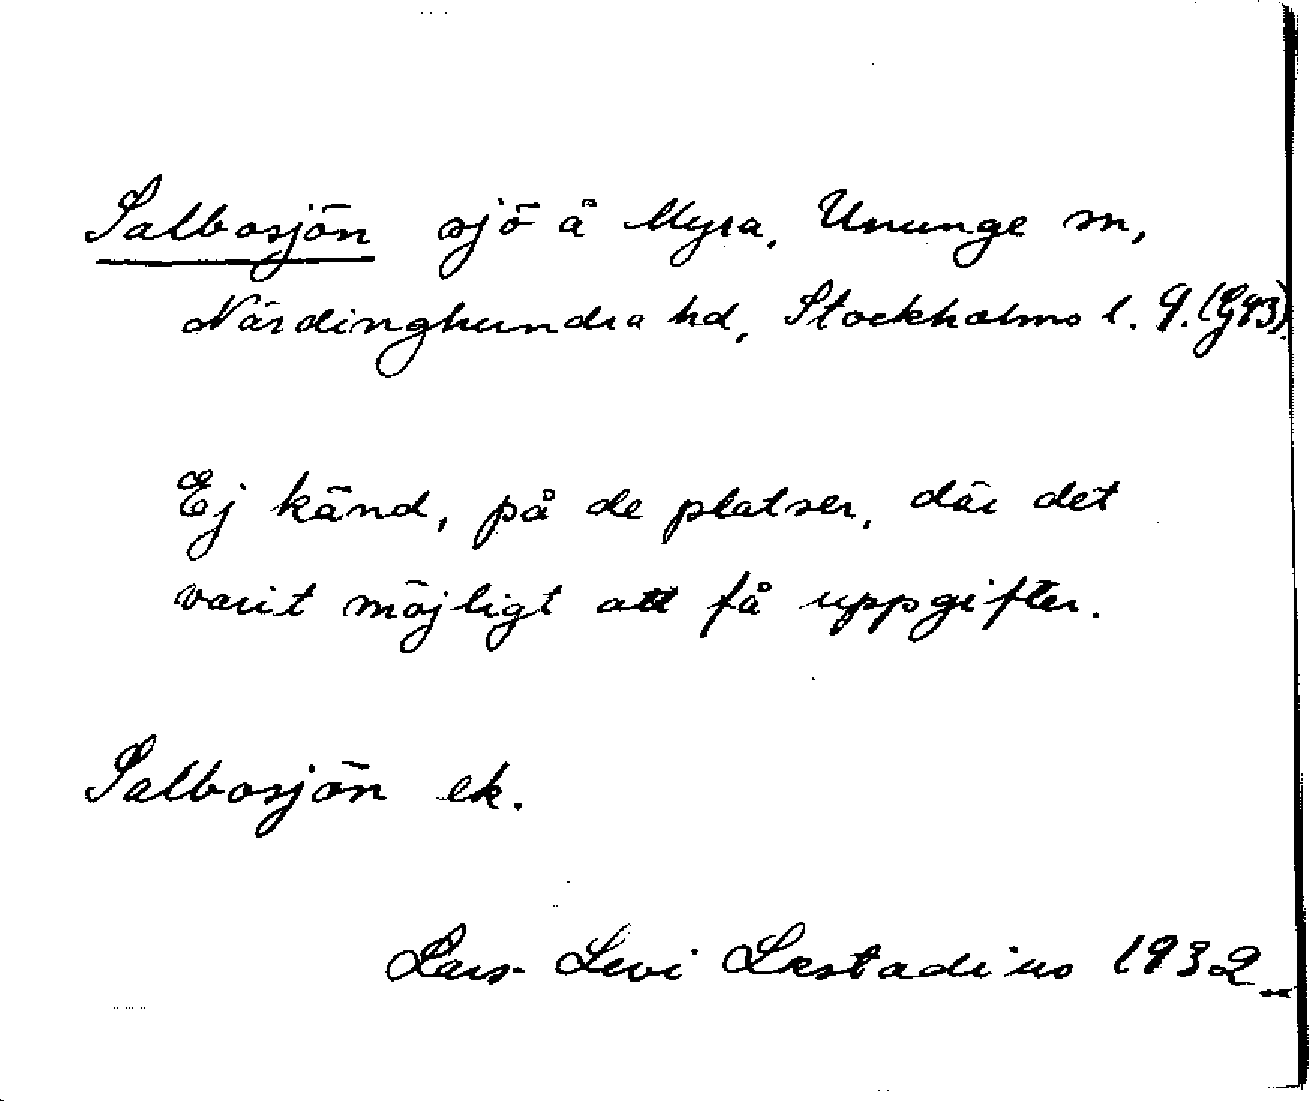 Salbosjön sjö å Myra, Ununge sn,
Närdinghundra hd, Stockholms l. 9. (G93).
Ej känd, på de platser, där det
varit möjligt att få uppgifter.
Salbosjön ek.
Lars Levi Læstadius 1932